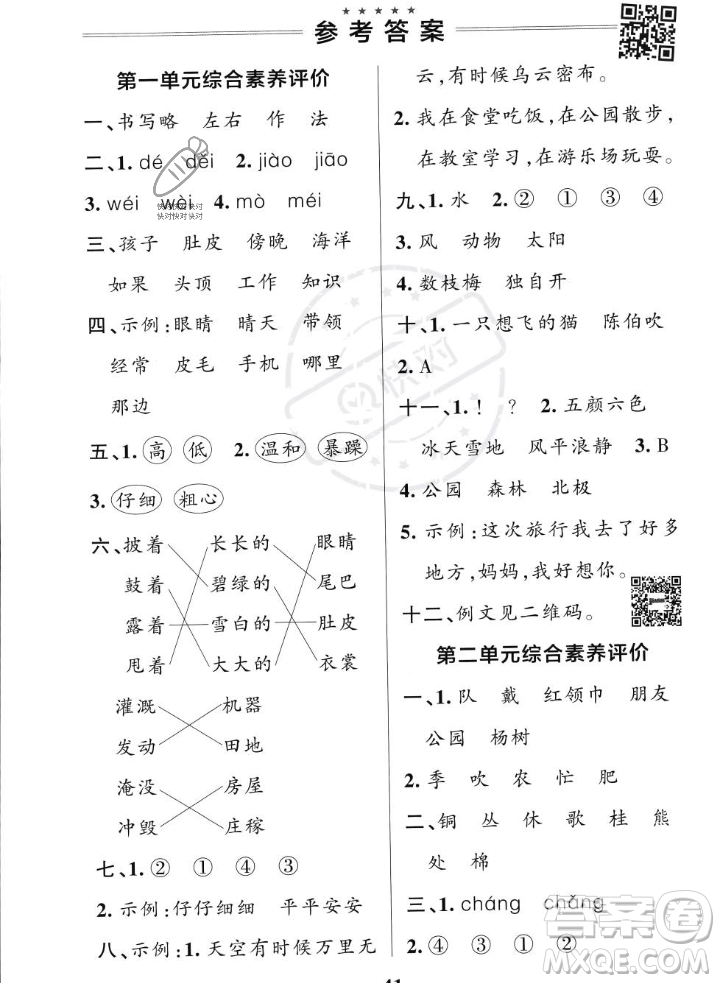 参考答案
第一单元综合素养评价
一、书写略 左右 作 法
二、1. dé děi 2. jiào jiāo
3. wéi wèi 4. mò méi
三、孩子 肚皮 傍晚 海洋
如果 头顶 工作 知识
四、示例:眼睛 晴天 带领
经常 皮毛 手机 哪里
那边
五、1. 高 低 2. 温和 暴躁
3. 仔细 粗心
六、披着 长长的 眼睛
鼓着 碧绿的 尾巴
露着 雪白的 肚皮
甩着 大大的 衣裳
灌溉 机器
发动 田地
淹没 房屋
冲毁 庄稼
七、1. ② ① ④ ③
2. 示例:仔仔细细 平平安安
八、示例:1. 天空有时候万里无
云,有时候乌云密布。
2. 我在食堂吃饭,在公园散步,
在教室学习,在游乐场玩耍。
九、1. 水 2. ② ① ③ ④
3. 风 动物 太阳
4. 数枝梅 独自开
十、1. 一只想飞的猫 陈伯吹
2. A
十一、1. ! ? 2. 五颜六色
冰天雪地 风平浪静 3. B
4. 公园 森林 北极
5. 示例:这次旅行我去了好多
地方,妈妈,我好想你。
十二、例文见二维码。
第二单元综合素养评价
一、1. 队 戴 红领巾 朋友
公园 杨树
2. 季 吹 农 忙 肥
二、铜 丛 休 歌 桂 熊
处 棉
三、1. cháng chǎng
2. ④ ③ ① ②
快对快对快对
快对快对快对
快对
答案圈
MXQE.COM
41